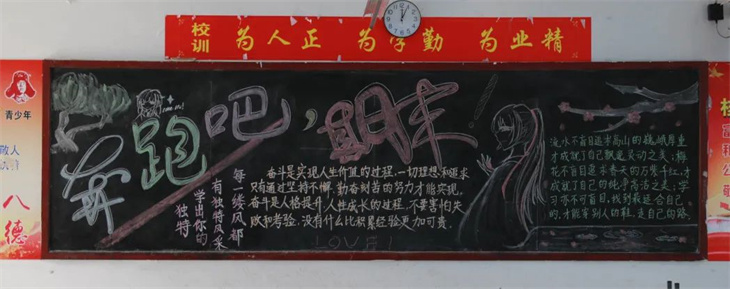 校训
为人正 为学勤 为业精
青少年
八德
奔跑吧，期末！
每一缕风都
有独特风采
学出你的
独特
奋斗是实现人生价值的过程，一切理想和追求
只有通过坚持不懈，勤奋刻苦的努力才能实现。
奋斗是人格提升，人性成长的过程，不要害怕失
败和考验，没有什么比积累经验更加可贵。
LOVE!
流水不盲目追求高山的巍峨厚重
才成就了自己飘逸灵动之美；梅
花不盲目追求春天的万紫千红，才
成就了自己的纯净高洁之美；学
习亦不可盲目，找到最适合自己
的，才能穿别人的鞋，走自己的路